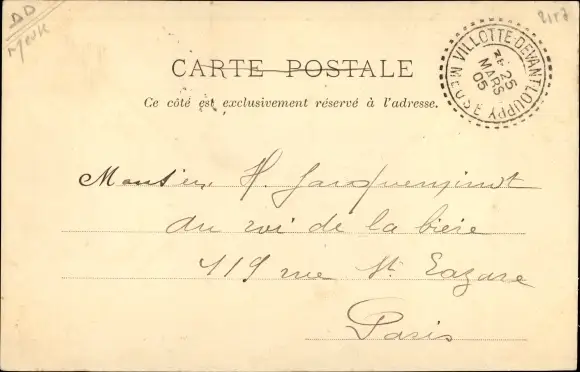 DD
Meuse
2157
CARTE POSTALE
Ce côté est exclusivement réservé à l'adresse.
VILLOTTE-DEVANT-LOUPPY MEUSE
25
MARS
05
Monsieur H. Jacqueminot
du roi de la bière
119 rue St Lazare
Paris